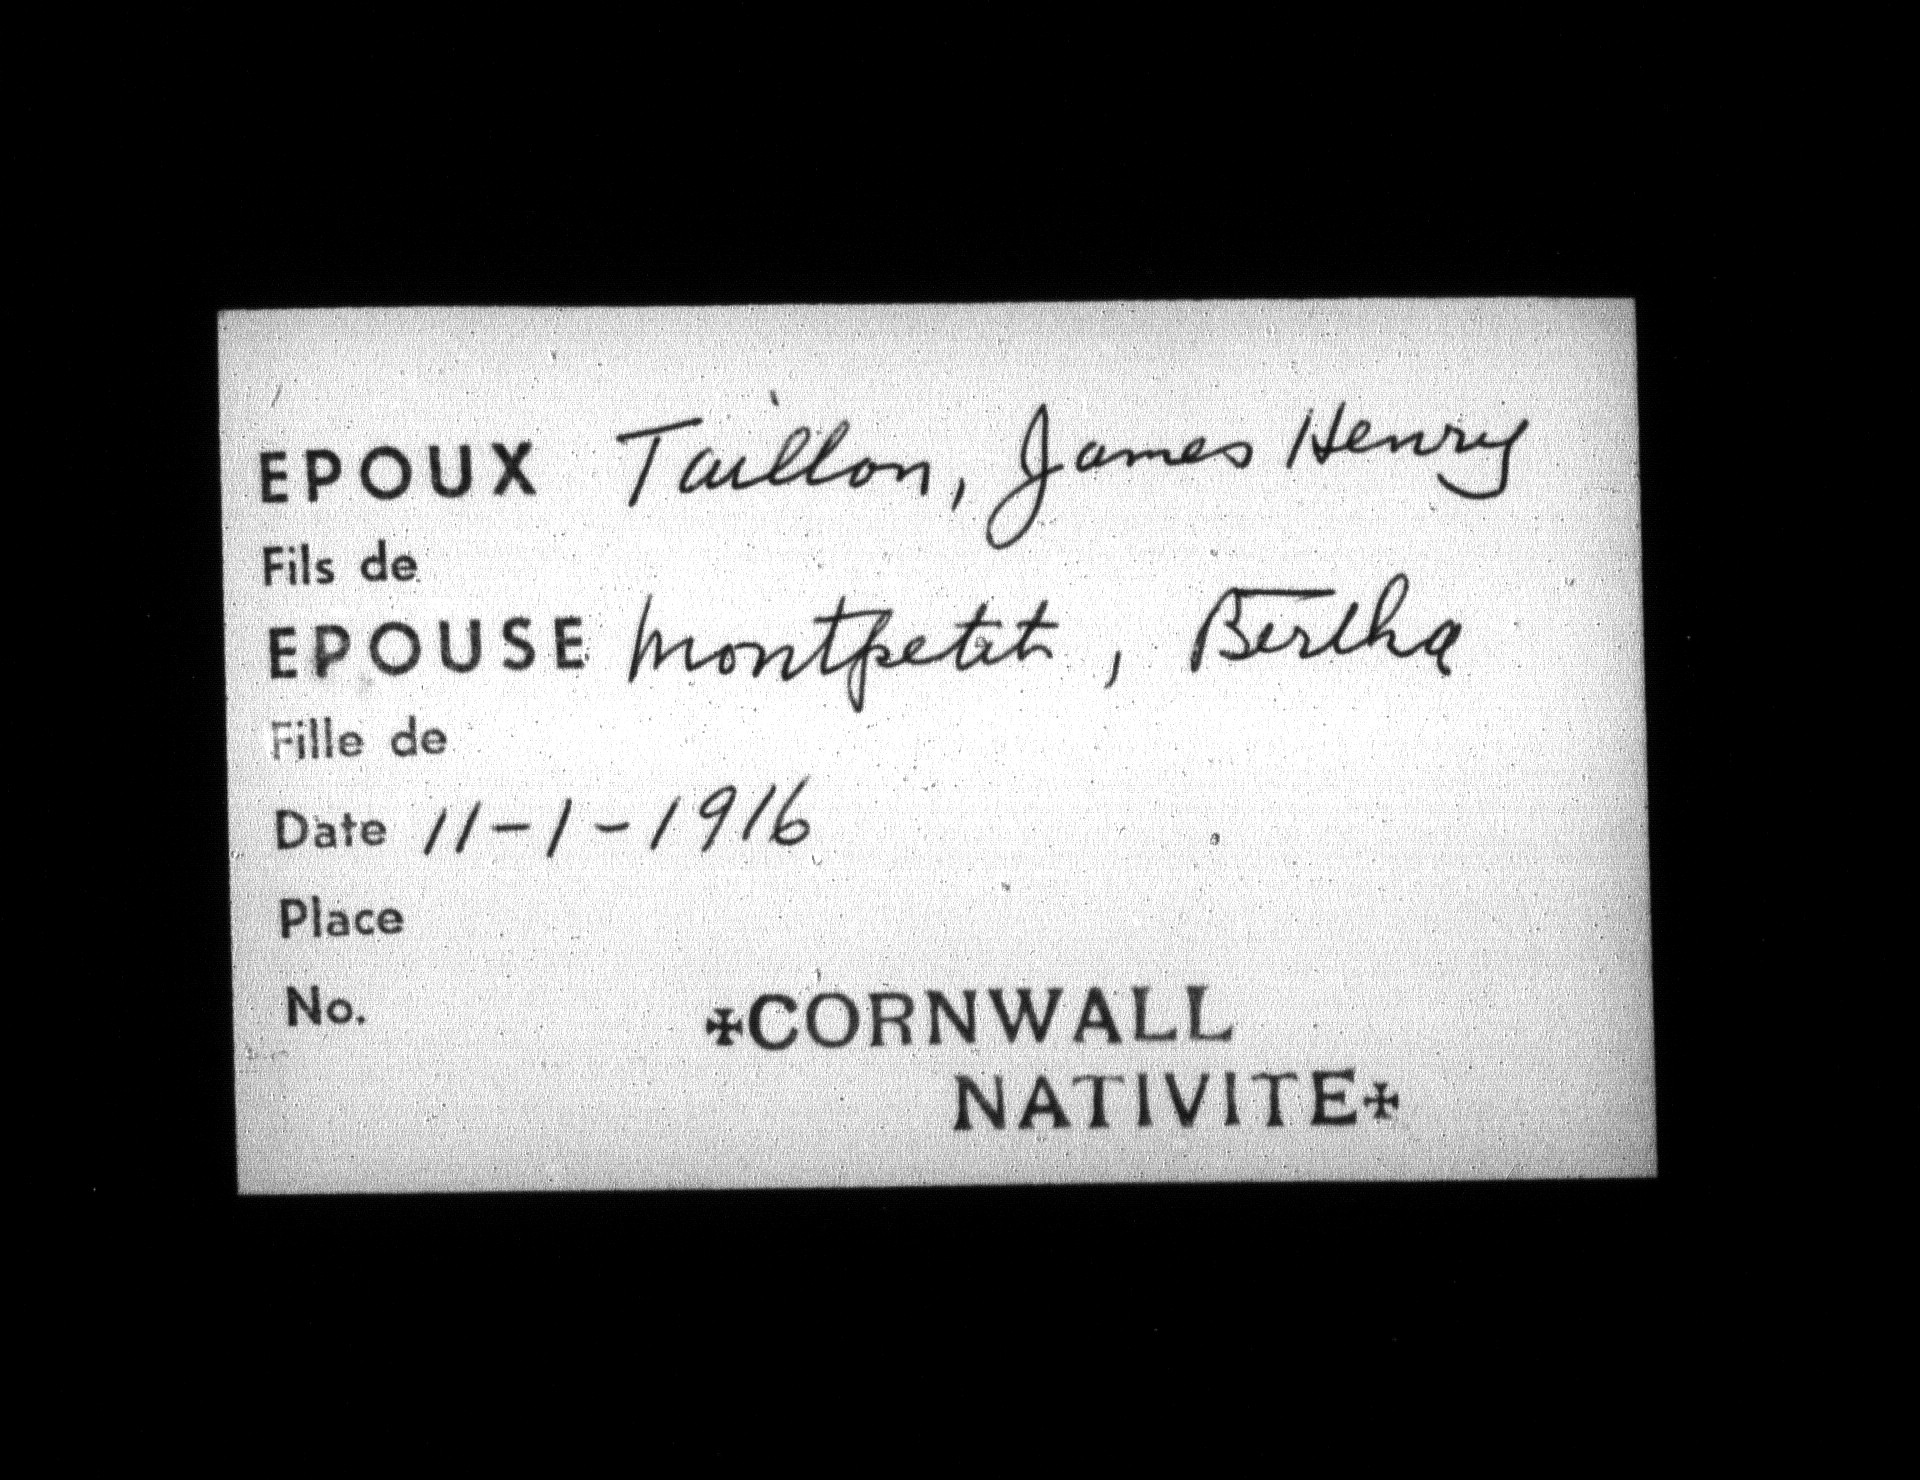 EPOUX Taillon, James Henry
Fils de
EPOUSE Montpetit, Bertha
Fille de
Date 11-1-1916
Place
No.
✠CORNWALL
NATIVITE✠